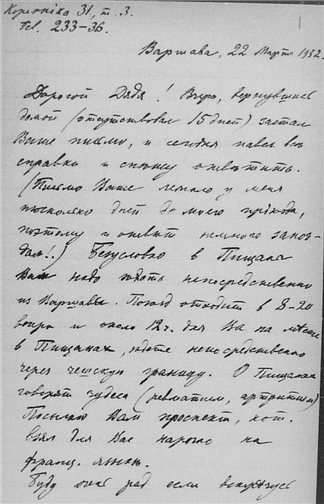 Коперника 31, m. 3.
Tel. 233-36.
Варшава, 22 Марта 1932.
Дорогой Дядя! Вчера, вернувшись
домой (отсутствовал 15 дней) застал
Ваше письмо, и сегодня навел все
справки и спешу ответить.
(Письмо Ваше лежало у меня
несколько дней до моего приезда,
поэтому и ответ немного запоз-
дал!.) Безусловно в Пищаны
Вам надо ехать непосредственно
из Варшавы. Поезд отходит в 8-20
вечера и около 12 ч. дня на месте
в Пищанах, идёте непосредственно
через чешскую границу. О Пищанах
говорят чудеса (ревматизм, артритизм)
Посылаю Вам проспект, кот.
взял для Вас нарочно на
франц. языке.
Буду очень рад если